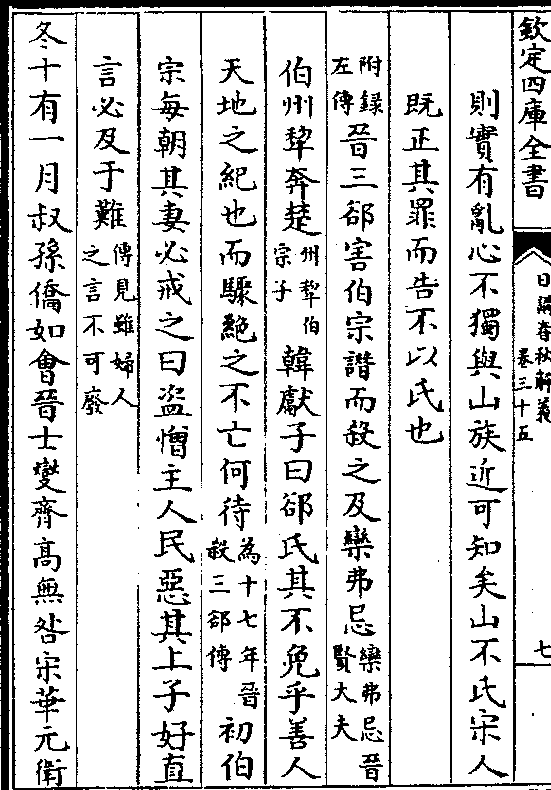 欽定四庫全書
日講春秋解義
卷三十五
七
則實有亂心不獨與山族近可知矣山不氏宋人
既正其罪而告不以氏也
附録
左傳
晉三郤害伯宗譖而殺之及欒弗忌
欒弗忌晉
賢大夫
伯州犂奔楚
州犂伯
宗子
韓獻子曰郤氏其不免乎善人
天地之紀也而驟絶之不亡何待
為十七年晉
殺三郤傳
初伯
宗每朝其妻必戒之曰盗憎主人民惡其上子好直
言必及于難
傳見雖婦人
之言不可廢
冬十有一月叔孫僑如會晉士燮齊髙無咎宋華元衛